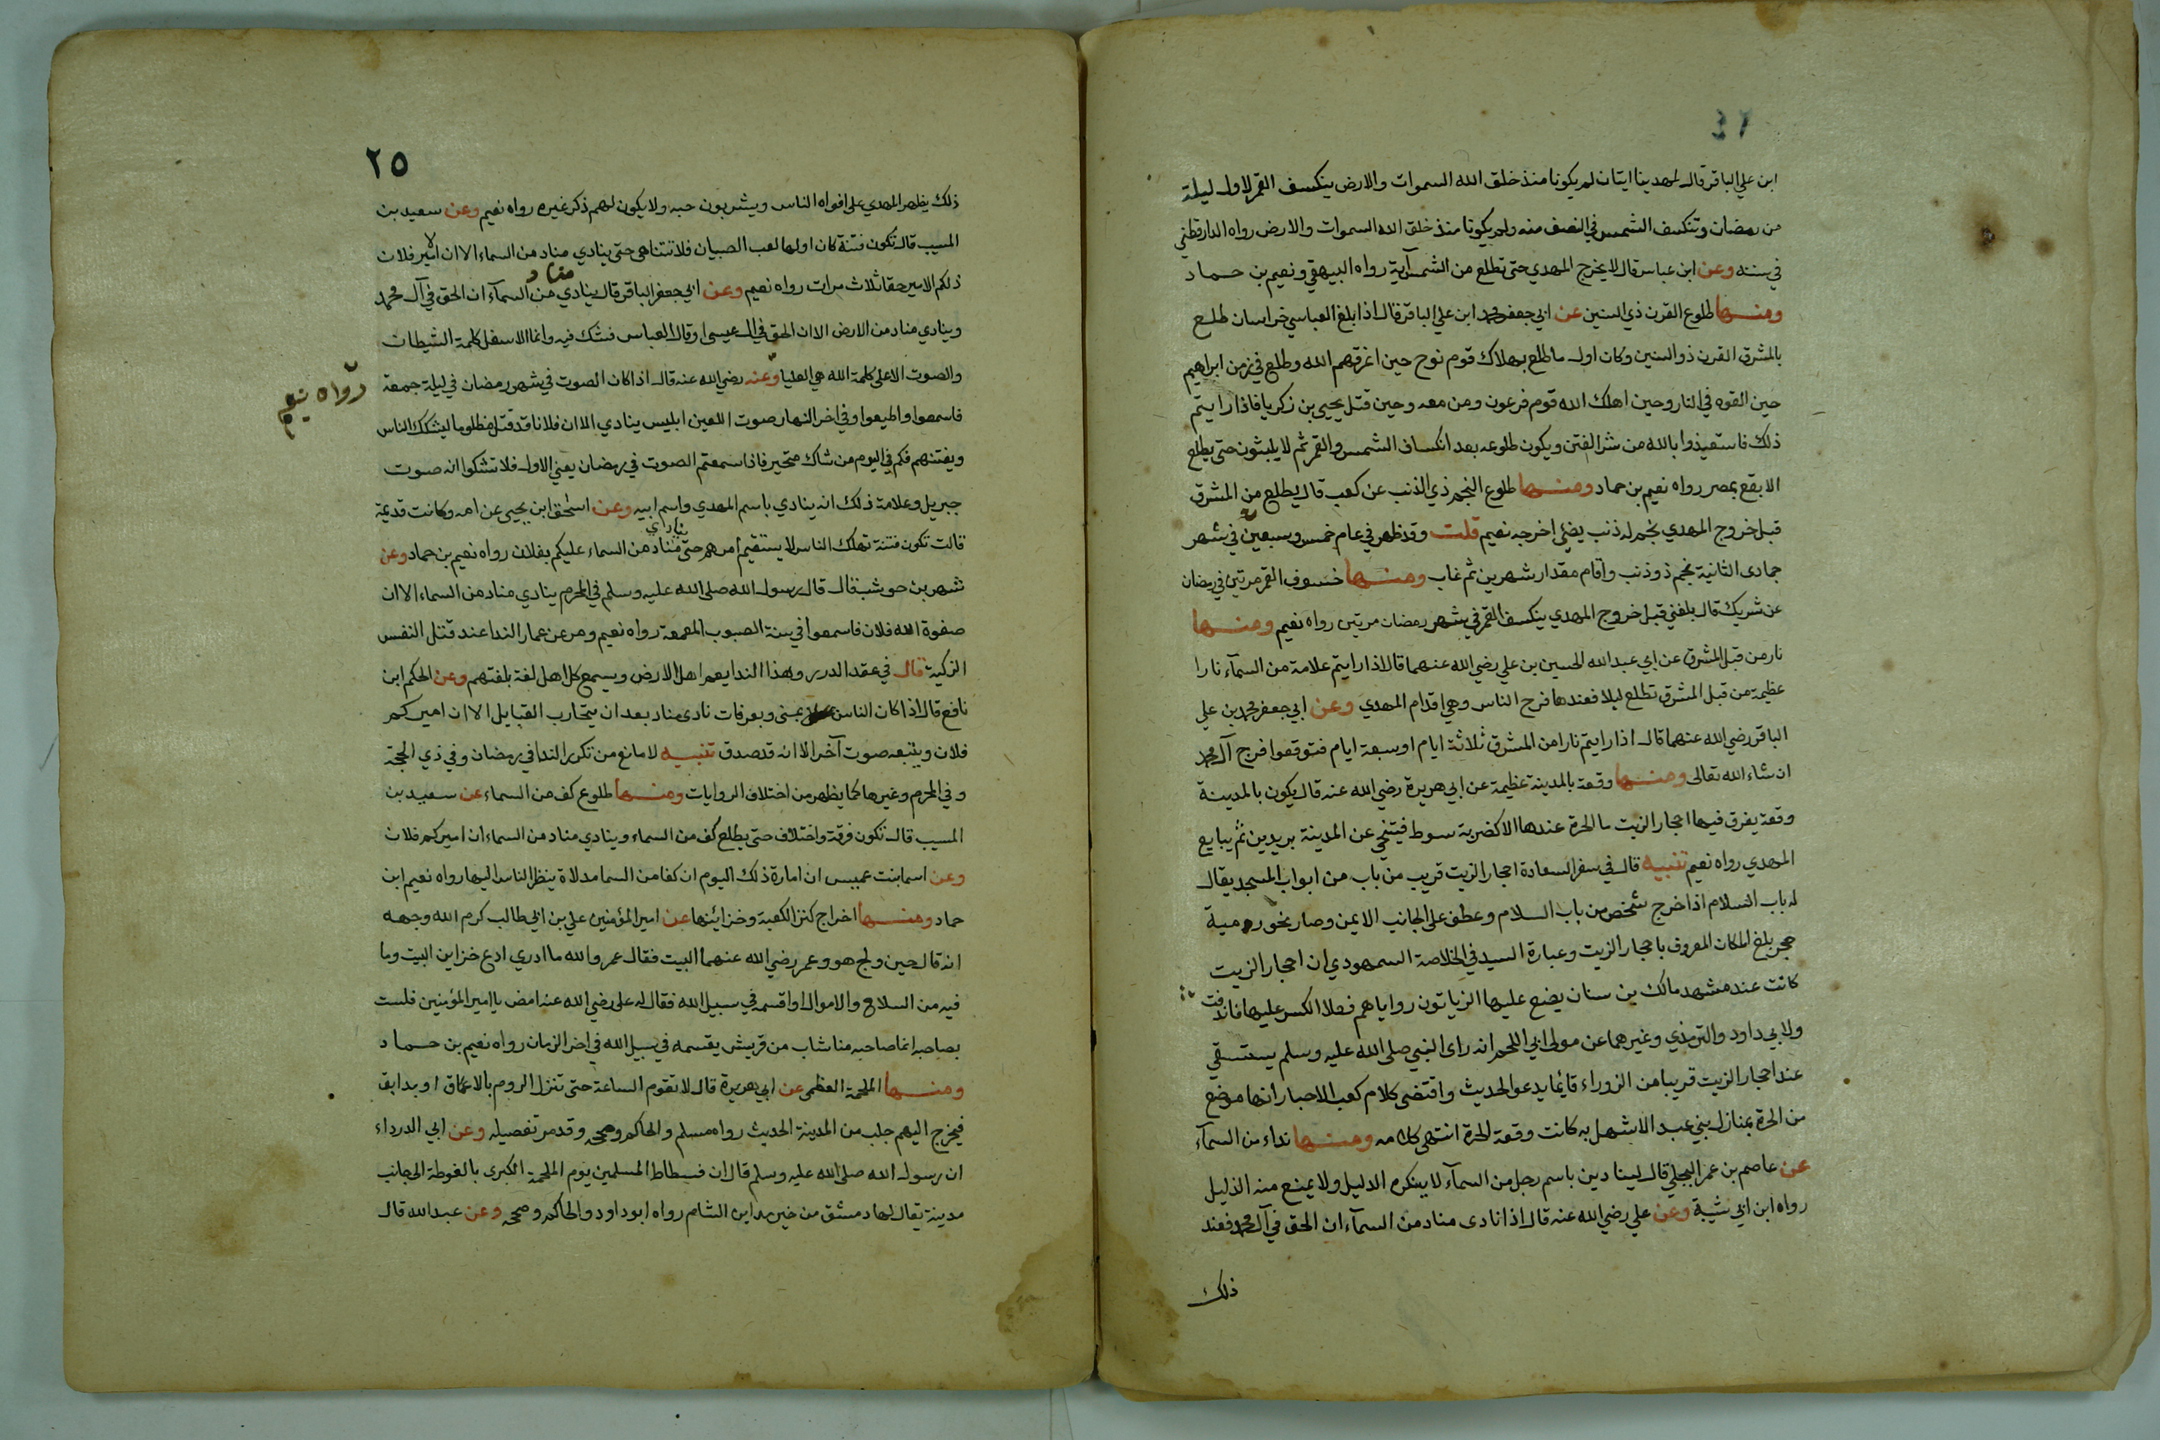 ٢٤
ابن علي الباقر قال لمهدينا ايتان لم يكونا منذ خلق الله السموات والارض ينكسف القمر لاول ليلة
من رمضان وتنكسف الشمس في النصف منه ولم يكونا منذ خلق الله السموات والارض رواه الدارقطني
في سننه وعن ابن عباس قال لا يخرج المهدي حتى تطلع من الشمس آية رواه البيهقي ونعيم بن حماد
ومنها طلوع القرن ذي السنين عن ابي جعفر محمد ابن علي الباقر قال اذا بلغ العباسي خراسان طلع
بالمشرق القرن ذو السنين وكان اول ما طلع بهلاك قوم نوح حين اغرقهم الله وطلع في زمن ابراهيم
حين القوه في النار وحين اهلك الله قوم فرعون ومن معه وحين قتل يحيى بن زكريا فاذا رايتم
ذلك فاستعيذوا بالله من شر الفتن ويكون طلوعه بعد انكساف الشمس والقمر ثم لا يلبثون حتى يطلع
الابقع بمصر رواه نعيم بن حماد ومنها طلوع النجم ذي الذنب عن كعب قال يطلع من المشرق
قبل خروج المهدي نجم له ذنب يضئ اخرجه نعيم قلت وقد ظهر في عام خمس وسبعين في شهر
جمادى الثانية نجم ذو ذنب واقام مقدار شهرين ثم غاب ومنها خسوف القمر مرتين في رمضان
عن شريك قال بلغني قبل خروج المهدي ينكسف القمر في شهر رمضان مرتين رواه نعيم ومنها
نار من قبل المشرق عن ابي عبد الله الحسين بن علي رضي الله عنهما قال اذا رايتم علامة من السمآء نارا
عظيمة من قبل المشرق تطلع ليلا فعندها فرج الناس وهي اقدام المهدي وعن ابي جعفر محمد بن علي
الباقر رضي الله عنهما قال اذا رايتم نارا من المشرق ثلاثة ايام او سبعة ايام فتوقعوا فرج آل محمد
ان شاء الله تعالى ومنها وقعة بالمدينة عظيمة عن ابي هريرة رضي الله عنه قال يكون بالمدينة
وقعة يغرق فيها احجار الزيت ما الحرة عندها الا كضربة سوط فيتنحى عن المدينة بريدين ثم يبايع
المهدي رواه نعيم تنبيه قال في سفر السعادة احجار الزيت قريب من باب من ابواب المسجد يقال
له باب السلام اذا خرج شخص من باب السلام وعطف على الجانب الايمن وصار نحو رمية
حجر بلغ المكان المعروف باحجار الزيت وعبارة السيد في الخلاصة السمهودي ان احجار الزيت
كانت عند مشهد مالك بن سنان يضع عليها الزياتون رواياهم فعلا الكبس عليها فاندفنت
ولابي داود والترمذي وغيرهما عن مولى ابي اللحم انه راى النبي صلى الله عليه وسلم يستسقي
عند احجار الزيت قريبا من الزوراء قايما يدعو الحديث واقتضى كلام كعب الاحبار انها موضع
من الحرة بمنازل بني عبد الاشهل به كانت وقعة الحرة انتهى كلامه ومنها نداء من السمآء
عن عاصم بن عمر البجلي قال لينادين باسم رجل من السمآء لا ينكره الدليل ولا يمنع منه الذليل
رواه ابن ابي شيبة وعن علي رضي الله عنه قال اذا نادى مناد من السمآء ان الحق في آل محمد فعند
ذلك
٢٥
ذلك يظهر المهدي على افواه الناس ويشربون حبه ولا يكون لهم ذكر غيره رواه نعيم وعن سعيد بن
المسيب قال تكون فتنة كان اولها لعب الصبيان فلا تتناهى حتى ينادي مناد من السماء الا ان الامير فلان
ذلكم الامير حقا ثلاث مرات رواه نعيم وعن ابي جعفر الباقر قال ينادي مناد من السمآء ان الحق في آل محمد
وينادي مناد من الارض الا ان الحق في ال عيسى او قال العباس فشك فيه وانما الاسفل كلمة الشيطان
والصوت الاعلى كلمة الله هي العليا وعنه رضي الله عنه قال اذا كان الصوت في شهر رمضان في ليلة جمعة
رواه نعيم
فاسمعوا واطيعوا وفي اخر النهار صوت اللعين ابليس ينادي الا ان فلانا قد قتل مظلوما ليشكك الناس
ويفتنهم فكم في اليوم من شاك متحير فاذا سمعتم الصوت في رمضان يعني الاول فلا تشكوا انه صوت
جبريل وعلامة ذلك انه ينادي باسم المهدي واسم ابيه وعن اسحق ابن يحيى عن امه وكانت قديمة
قالت تكون فتنة تهلك الناس لا يستقيم امرهم حتى ينادي مناد من السماء عليكم بفلان رواه نعيم بن حماد وعن
شهر بن حوشب قال قال رسول الله صلى الله عليه وسلم في المحرم ينادي مناد من السماء الا ان
صفوة الله فلان فاسمعوا في سنة الصوب المعمعة رواه نعيم ومر عن عمار الندا عند قتل النفس
الزكية قال في عقد الدرر وهذا الندا يعم اهل الارض ويسمع كل اهل لغة بلغتهم وعن الحكم ابن
نافع قال اذا كان الناس بمنى وبعرفات نادى مناد بعد ان تحارب القبايل الا ان اميركم
فلان ويتبعه صوت آخر الا انه قد صدق تنبيه لا مانع من تكرر الندا في رمضان وفي ذي الحجة
وفي المحرم وغيرها كما يظهر من اختلاف الروايات ومنها طلوع كف من السماء عن سعيد بن
المسيب قال تكون فرقة واختلاف حتى يطلع كف من السماء وينادي مناد من السماء ان اميركم فلان
وعن اسما بنت عميس ان امارة ذلك اليوم ان كفا من السما مدلاة ينظر الناس اليها رواه نعيم ابن
حماد ومنها اخراج كنز الكعبة وخزائنها عن امير المؤمنين علي بن ابي طالب كرم الله وجهه
انه قال حين ولج هو وعمر رضي الله عنهما البيت فقال عمر والله ما ادري ادع خزاين البيت وما
فيه من السلاح والاموال او اقسمه في سبيل الله فقال له على رضي الله عنه امض يا امير المؤمنين فلست
بصاحبه انما صاحبه منا شاب من قريش يقسمه في سبيل الله في اخر الزمان رواه نعيم بن حماد
ومنها الملحمة العظمى عن ابي هريرة قال لا تقوم الساعة حتى تنزل الروم بالاعماق او بدابق
فيخرج اليهم جلب من المدينة الحديث رواه مسلم والحاكم وصححه وقد مر تفصيله وعن ابي الدرداء
ان رسول الله صلى الله عليه وسلم قال ان فسطاط المسلمين يوم الملحمة الكبرى بالغوطة الى جانب
مدينة يقال لها دمشق من خير مداين الشام رواه ابو داود والحاكم وصححه وعن عبد الله قال